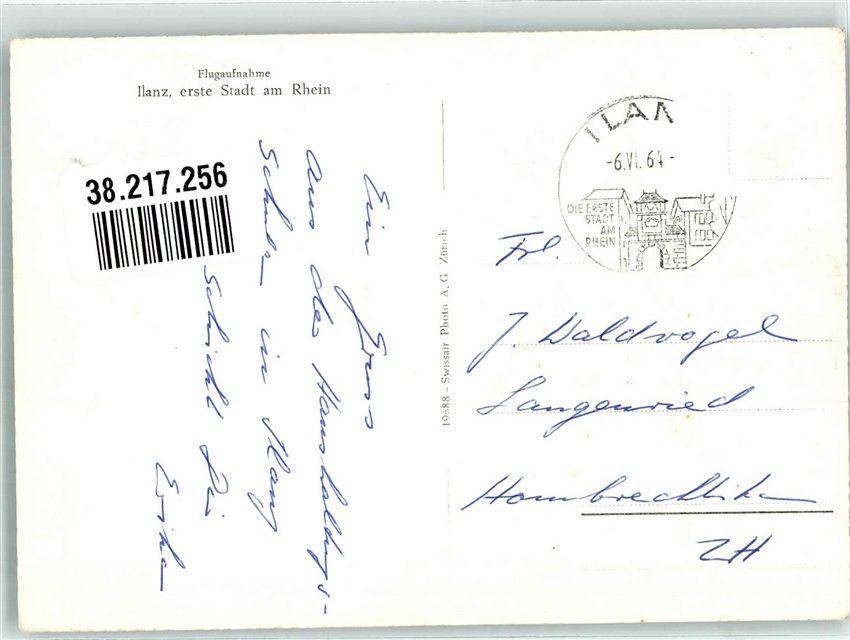 Flugaufnahme
Ilanz, erste Stadt am Rhein
38.217.256
Ein Gruss
aus der Haushaltungs-
Schule in Ilanz
schickt Dir
Erika
19688 - Swissair Photo A. G. Zürich
ILAN
-6.VI.64-
DIE ERSTE
STADT
AM
RHEIN
Frl.
J. Waldvogel
Langenried
Hombrechtikon
ZH